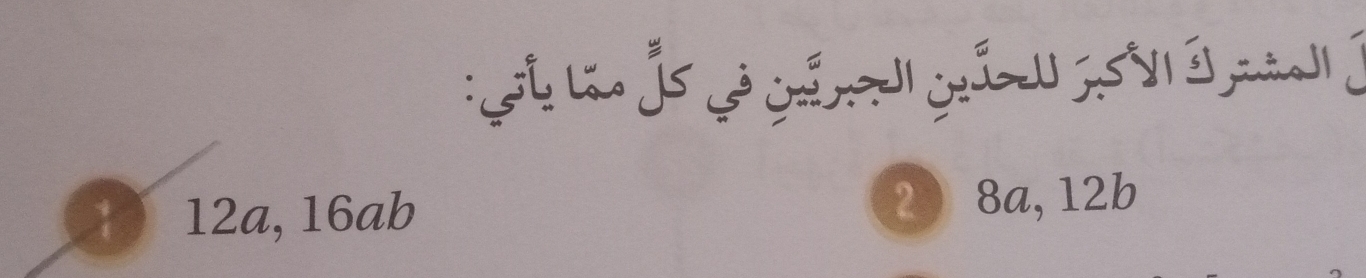 المشتركَ الأكبرَ للحدَّينِ الجبريَّينِ في كلٍّ ممّا يأتي:
1 12a, 16ab
2 8a, 12b